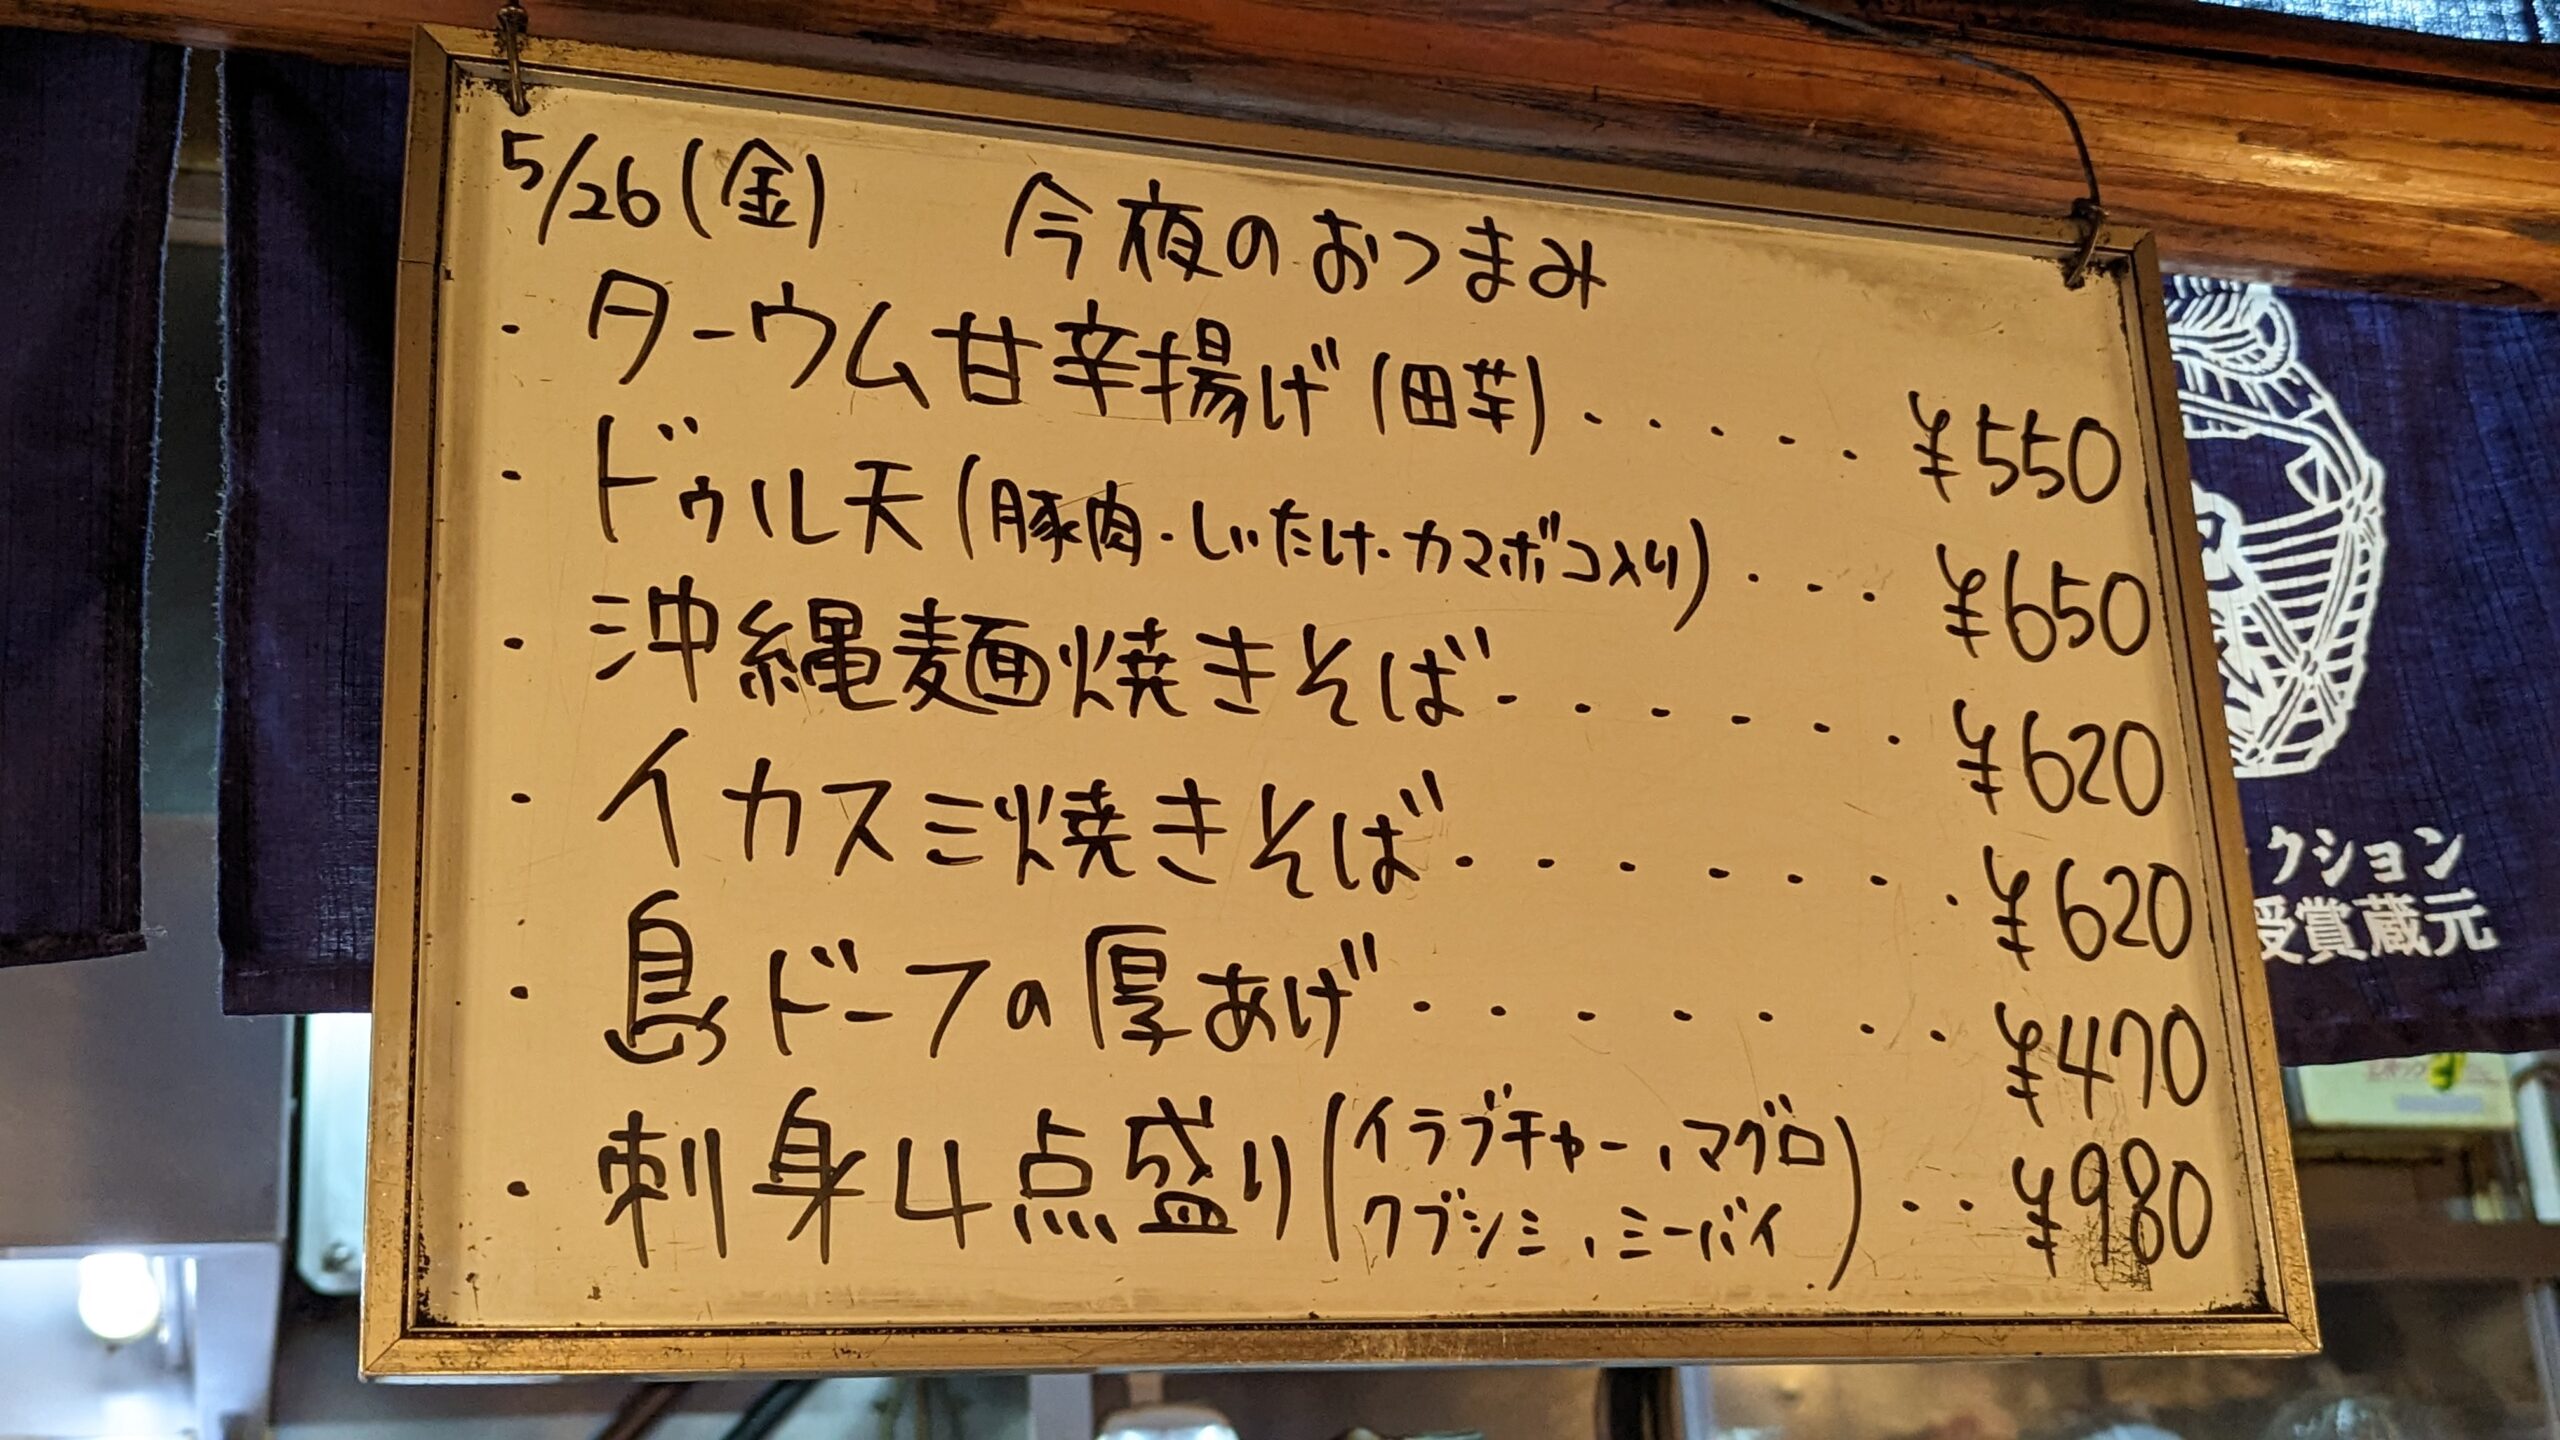 5/26(金) 今夜のおつまみ
・ターウム甘辛揚げ(田芋)・・・・・¥550
・ドゥル天(豚肉・しいたけ・カマボコ入り)・・・¥650
・沖縄麺焼きそば・・・・・・¥620
・イカスミ焼きそば・・・・・・・¥620
・島ドーフの厚あげ・・・・・・・¥470
・刺身4点盛り(イラブチャー、マグロ
クブシミ、ミーバイ)・・¥980
クション
受賞蔵元